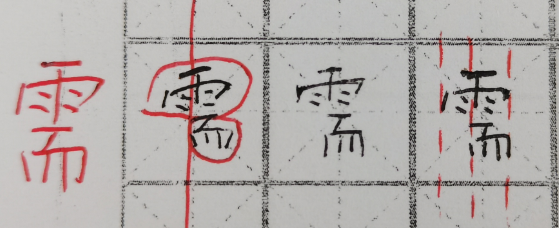 需 需 需 需